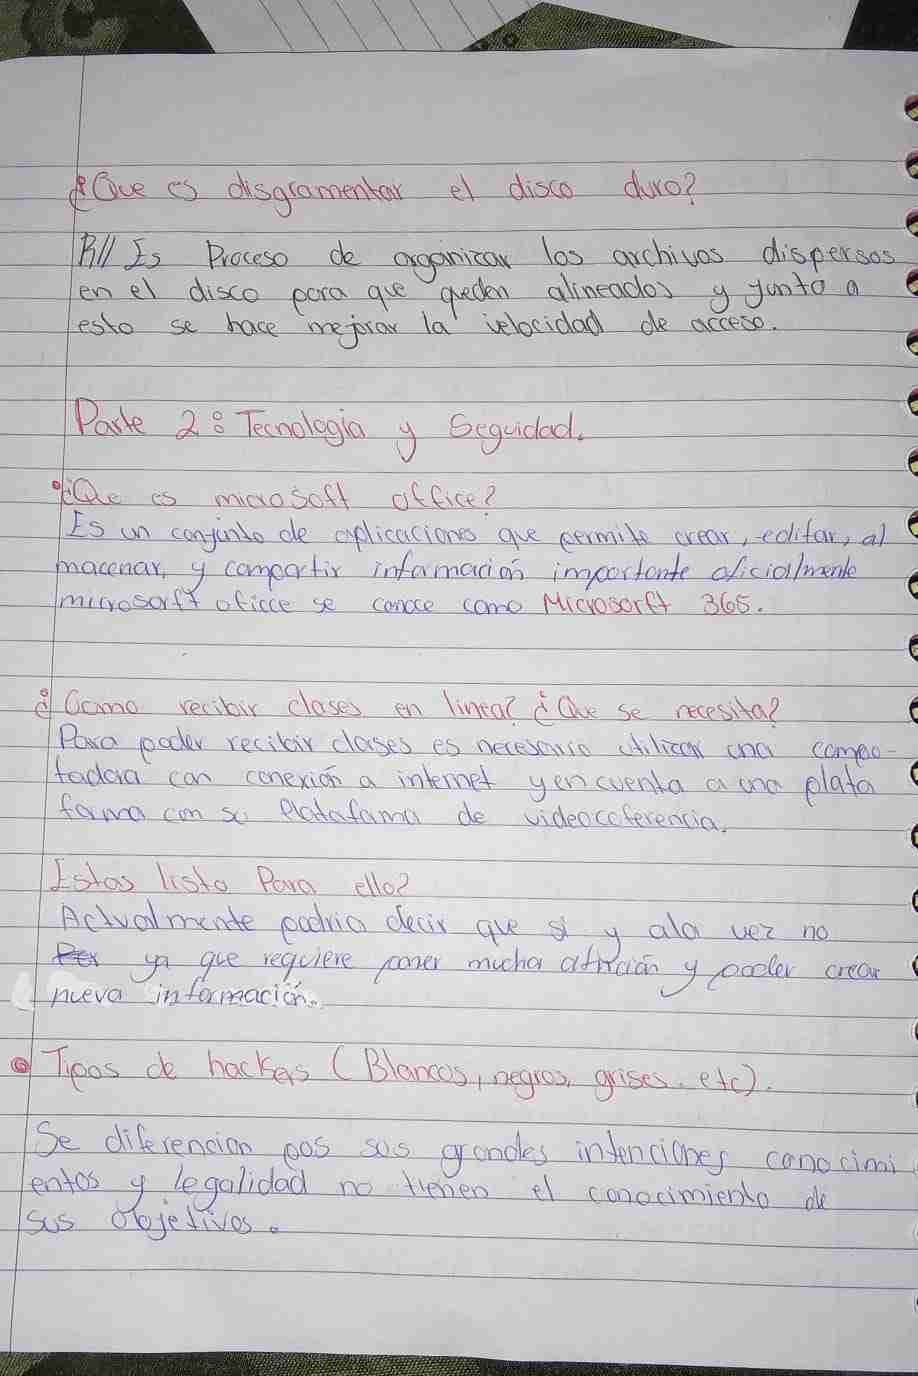 ¿Que es disgramentar el disco duro?
R// Es Proceso de organizar los archivos dispersos
en el disco para que queden alineados y junto a
esto se hace mejorar la velocidad de acceso.
Parte 2: Tecnologia y Seguidad.
¿Que es microsoft office?
Es un conjunto de aplicaciones que permite crear, editar, al
macenar, y compartir información importante oficialmente
microsorft oficce se conoce como Microsorft 365.
¿Como recibir clases en linea? ¿Que se necesita?
Para poder recibir clases es necesario utilizar una compu-
tadora con conexión a internet y en cuenta a una plata
forma con su Platafama de videocoferencia.
Estas listo Para ello?
Actualmente podria decir que si y ala vez no
ya que requiere poner mucha atención y poder crear
nueva información.
Tipos de hackers (Blancos, negros, grises. etc).
Se diferencian pos sus grandes intenciones conocimi
entos y legalidad no tienen el conocimiento de
sus objetivos.